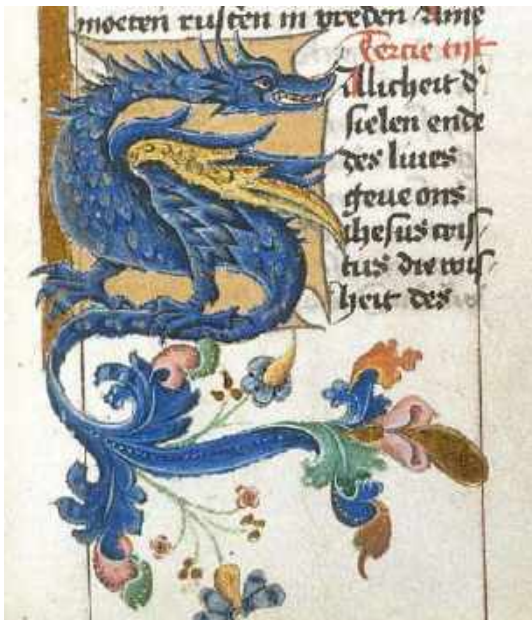 moeten rusten in vreden Ame
Tercie tijt
Sallicheit d'
sielen ende
des lives
gheve ons
ihesus cris/
tus die wijs/
heit des